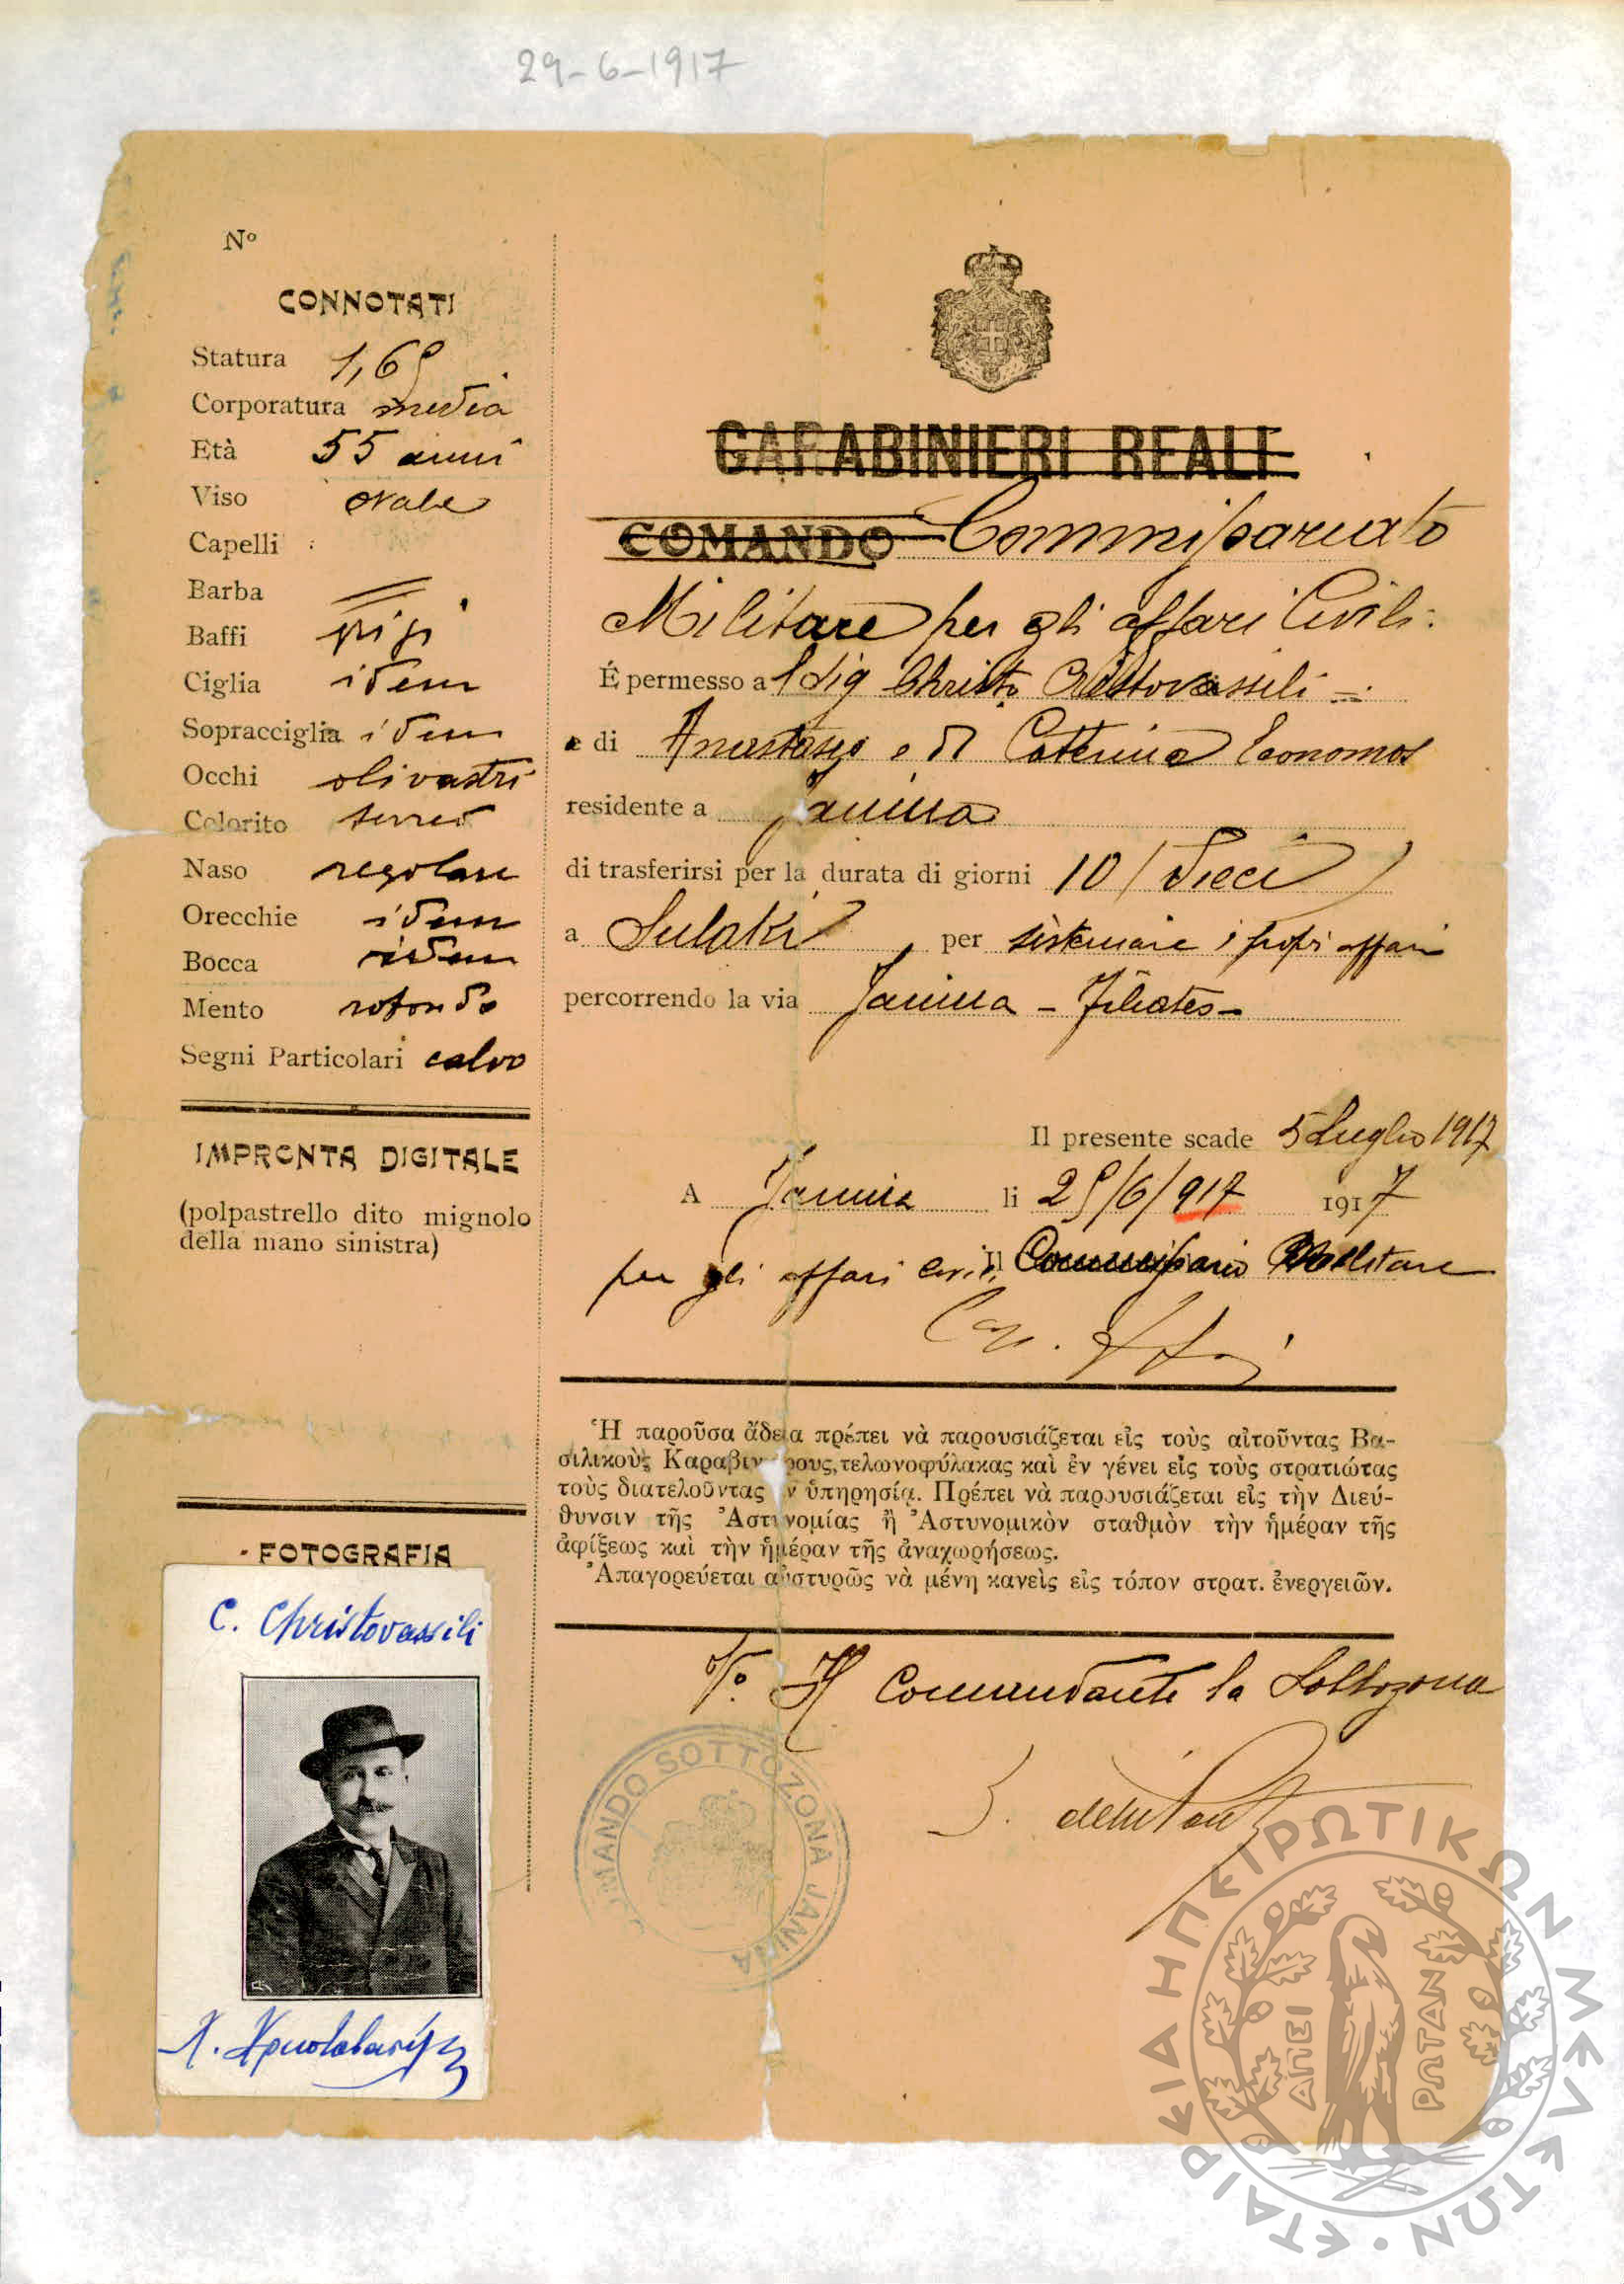 29-6-1917
Nº
CONNOTATI
Statura 1,69
Corporatura media
Età 55 anni
Viso ovale
Capelli
Barba
Baffi grigi
Ciglia idem
Sopracciglia idem
Occhi olivastri
Colorito terreo
Naso regolare
Orecchie idem
Bocca idem
Mento rotondo
Segni Particolari calvo
IMPRONTA DIGITALE
(polpastrello dito mignolo
della mano sinistra)
FOTOGRAFIA
C. Christovassili
Χ. Χρηστοβασίλης
CARABINIERI REALI
COMANDO Commissariato
Militare per gli affari Civili.
É permesso al Sig Christo Cristovassili
e di Anastasio e di Caterina Economos
residente a Janina
di trasferirsi per la durata di giorni 10 (Dieci)
a Sulaki, per sistemare i propri affari
percorrendo la via Janina - Filiates -
Il presente scade 5 Luglio 1917
A Janina li 29/6/917 1917
per gli affari civili Il Commissario Militare
Cap.
Ἡ παροῦσα ἄδεια πρέπει νὰ παρουσιάζεται εἰς τοὺς αἰτοῦντας Βα-
σιλικοὺς Καραβιν ρους, τελωνοφύλακας καὶ ἐν γένει εἰς τοὺς στρατιώτας
τοὺς διατελοῦντας ν ὑπηρησίᾳ. Πρέπει νὰ παρουσιάζεται εἰς τὴν Διεύ-
θυνσιν τῆς Ἀστυνομίας ἢ Ἀστυνομικὸν σταθμὸν τὴν ἡμέραν τῆς
ἀφίξεως καὶ τὴν ἡμέραν τῆς ἀναχωρήσεως.
Ἀπαγορεύεται αὐστυρῶς νὰ μένῃ κανεὶς εἰς τόπον στρατ. ἐνεργειῶν.
Vº Il Comandante la Sottozona
COMANDO SOTTOZONA JANINA
ΕΤΑΙΡΕΙΑ ΗΠΕΙΡΩΤΙΚΩΝ ΜΕΛΕΤΩΝ
ΑΠΕΙ
ΡΩΤΑΝ